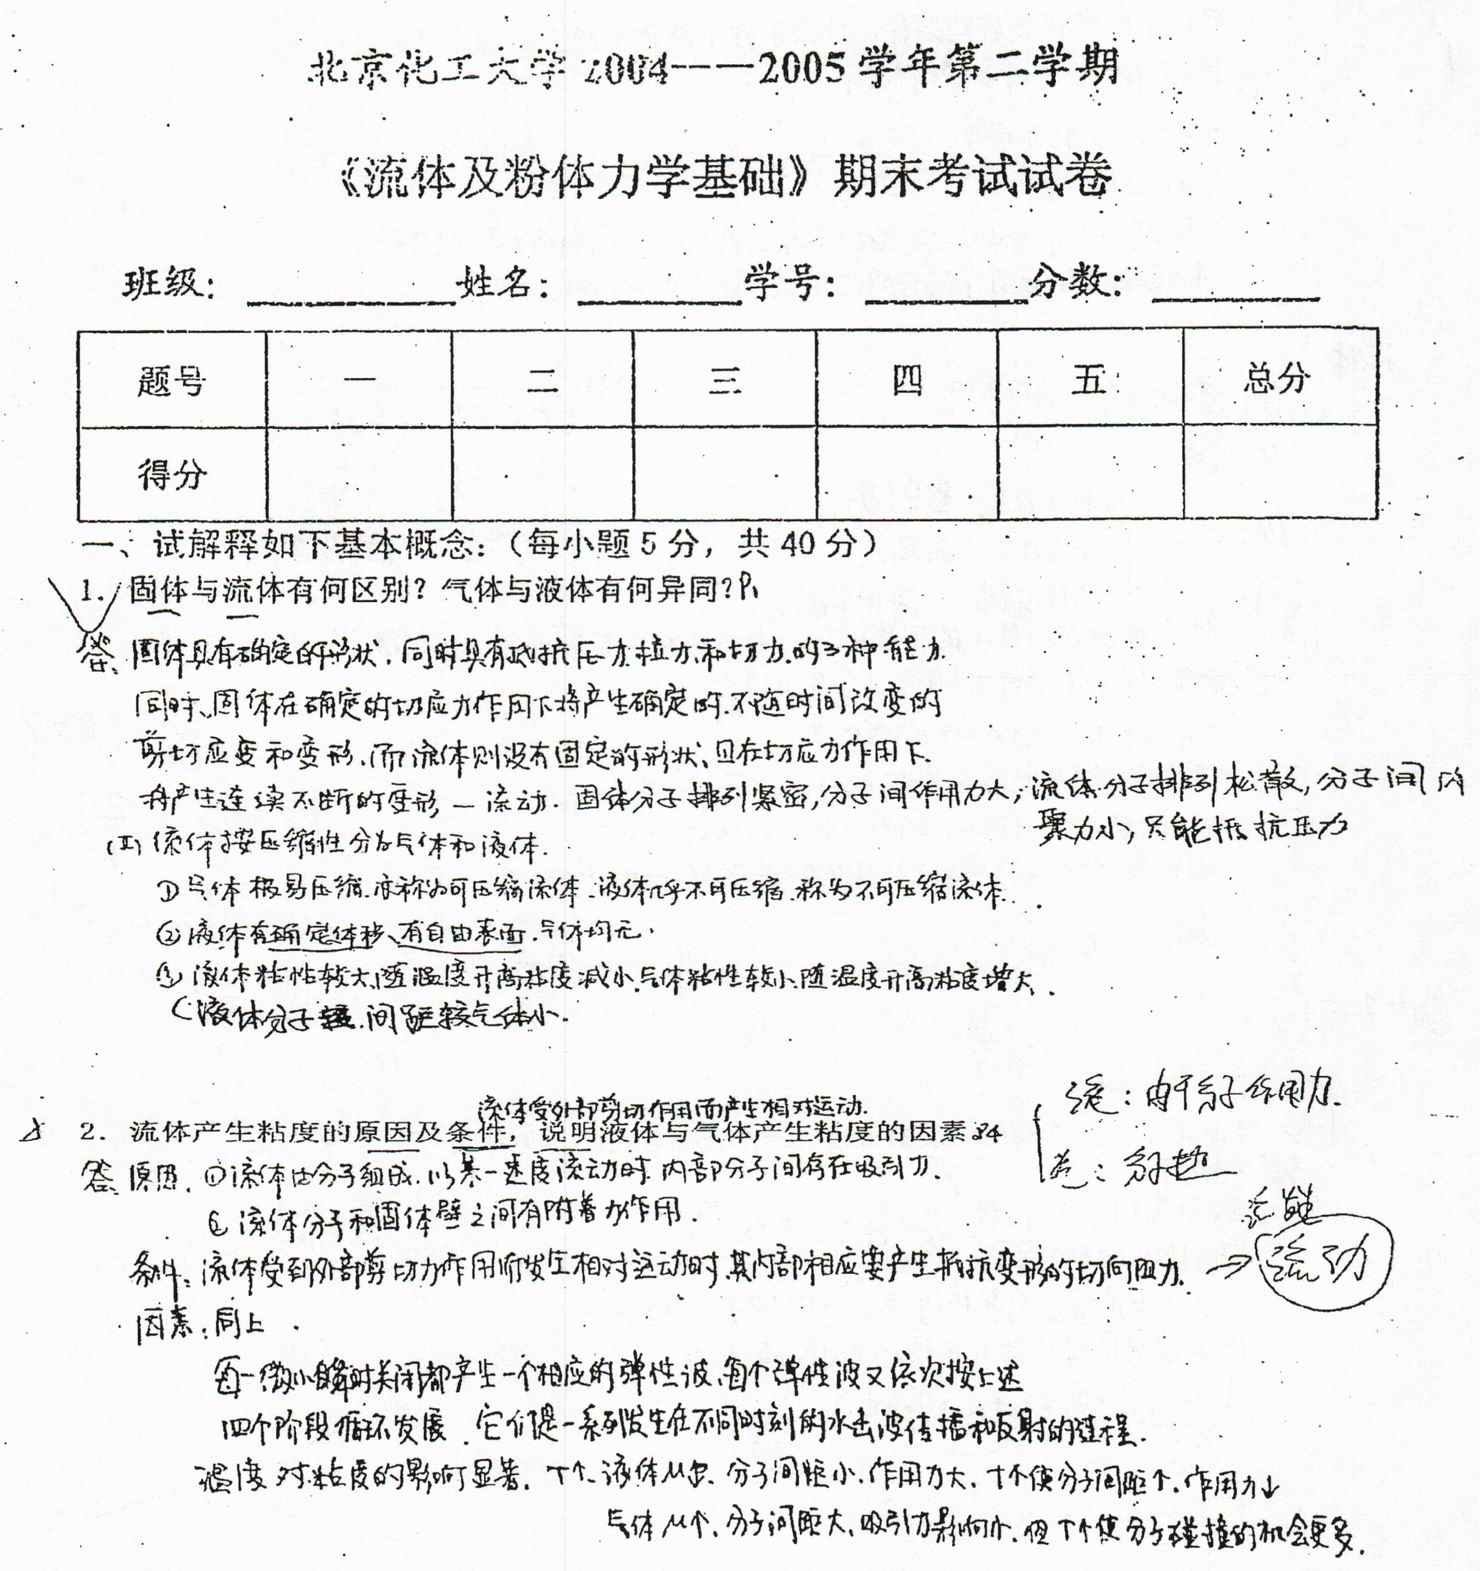 北京化工大学 2004——2005 学年第二学期
《流体及粉体力学基础》期末考试试卷
班级： 姓名： 学号： 分数：
题号 一 二 三 四 五 总分
得分
一、试解释如下基本概念：（每小题 5 分，共 40 分）
1. 固体与流体有何区别？气体与液体有何异同？P1
答、固体具有确定的形状，同时具有抵抗压力、拉力和切力的3种能力.
同时、固体在确定的切应力作用下将产生确定的、不随时间改变的
剪切应变和变形，而流体则没有固定的形状、且在切应力作用下.
将产生连续不断的变形—流动. 固体分子排列紧密，分子间作用力大，流体分子排列松散，分子间内
聚力小，只能抵抗压力
(II) 流体按压缩性分为气体和液体.
① 气体极易压缩.亦称为可压缩流体.液体几乎不可压缩.称为不可压缩流体.
② 液体有确定体积、有自由表面.气体均无.
③ 液体粘性较大、随温度升高粘度减小.气体粘性较小、随温度升高粘度增大.
(液体分子 间距较气体小.
流体受外部剪切作用而产生相对运动.
液：由于分子作用力.
2. 流体产生粘度的原因及条件，说明液体与气体产生粘度的因素 P4
答、原因. ①流体由分子组成.以某一速度流动时.内部分子间存在吸引力.
② 流体分子和固体壁之间有附着力作用.
条件：流体受到外部剪切力作用而发生相对运动时.其内部相应要产生抵抗变形的切向阻力. → 流动
因素：同上.
每一微小瞬时关闭都产生一个相应的弹性波、每个弹性波又依次按上述
四个阶段循环发展.它们是一系列发生在不同时刻的水击波传播和反射的过程.
温度对粘度的影响显著. T↑、液体μ↓. 分子间距小.作用力大. T↑使分子间距↑.作用力↓
气体μ↑. 分子间距大、吸引力影响小.但T↑使分子碰撞的机会更多.